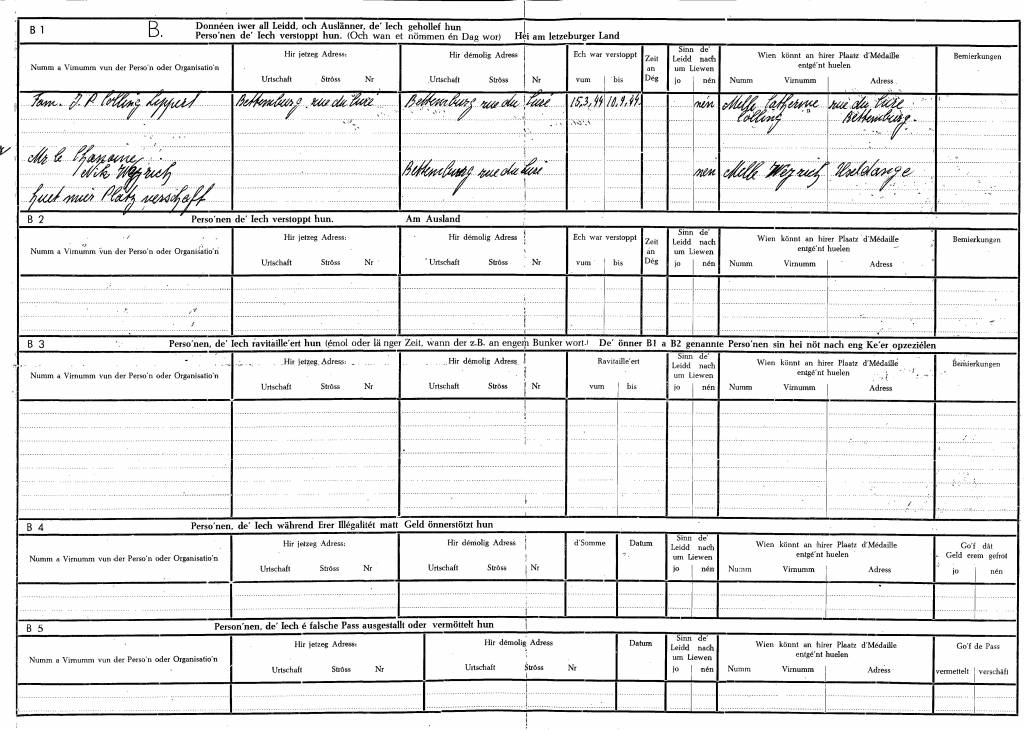 B 1 B. Donnéen iwer all Leidd, och Auslänner, de' Iech gehollef hun
Perso'nen de' Iech verstoppt hun. (Och wan et nömmen én Dag wor) Hei am letzeburger Land
Numm a Virnumm vun der Perso'n oder Organisatio'n Hir jetzeg Adress: Hir démolig Adress Ech war verstoppt Zeit an Dég Sinn de' Leidd nach um Liewen Wien könnt an hirer Plaatz d'Médaille entgé'nt huelen Bemierkungen
Urtschaft Ströss Nr Urtschaft Ströss Nr vum bis jo nén Numm Virnumm Adress
Fam. J. P. Colling Leppert Bettemburg rue du Curé Bettemburg rue du Curé 15.3.44 10.9.44. nén Melle Catherine rue du Curé
Colling Bettemburg.
Mr le Chanoine
Nik Weyrich Bettemburg rue du Curé nén Melle Weyrich Useldange
huet mier Platz verschaft
B 2 Perso'nen de' Iech verstoppt hun. Am Ausland
Numm a Virnumm vun der Perso'n oder Organisatio'n Hir jetzeg Adress: Hir démolig Adress Ech war verstoppt Zeit an Dég Sinn de' Leidd nach um Liewen Wien könnt an hirer Plaatz d'Médaille entgé'nt huelen Bemierkungen
Urtschaft Ströss Nr Urtschaft Ströss Nr vum bis jo nén Numm Virnumm Adress
B 3 Perso'nen, de' Iech ravitaille'ert hun (émol oder länger Zeit, wann der z.B. an engem Bunker wort.) De' önner B1 a B2 genannte Perso'nen sin hei nöt nach eng Ke'er opzeziélen
Numm a Virnumm vun der Perso'n oder Organisatio'n Hir jetzeg Adress: Hir démolig Adress Ravitaille'ert Sinn de' Leidd nach um Liewen Wien könnt an hirer Plaatz d'Médaille entgé'nt huelen Bemierkungen
Urtschaft Ströss Nr Urtschaft Ströss Nr vum bis jo nén Numm Virnumm Adress
B 4 Perso'nen, de' Iech während Erer Illégalitét matt Geld önnerstötzt hun
Numm a Virnumm vun der Perso'n oder Organisatio'n Hir jetzeg Adress: Hir démolig Adress d'Somme Datum Sinn de' Leidd nach um Liewen Wien könnt an hirer Plaatz d'Médaille entgé'nt huelen Go'f dât Geld erem gefrot
Urtschaft Ströss Nr Urtschaft Ströss Nr jo nén Numm Virnumm Adress jo nén
B 5 Person'nen, de' Iech é falsche Pass ausgestallt oder vermöttelt hun
Numm a Virnumm vun der Perso'n oder Organisatio'n Hir jetzeg Adress: Hir démolig Adress Datum Sinn de' Leidd nach um Liewen Wien könnt an hirer Plaatz d'Médaille entgé'nt huelen Go'f de Pass
Urtschaft Ströss Nr Urtschaft Ströss Nr jo nén Numm Virnumm Adress vermettelt verschäft